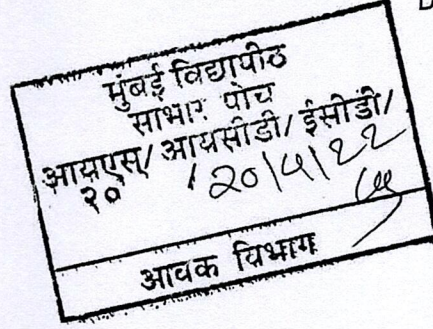 मुंबई विद्यापीठ
साभार पोच
आयएस/ आयसीडी/ ईसीडी/
२०       / 20/5/22
आवक विभाग